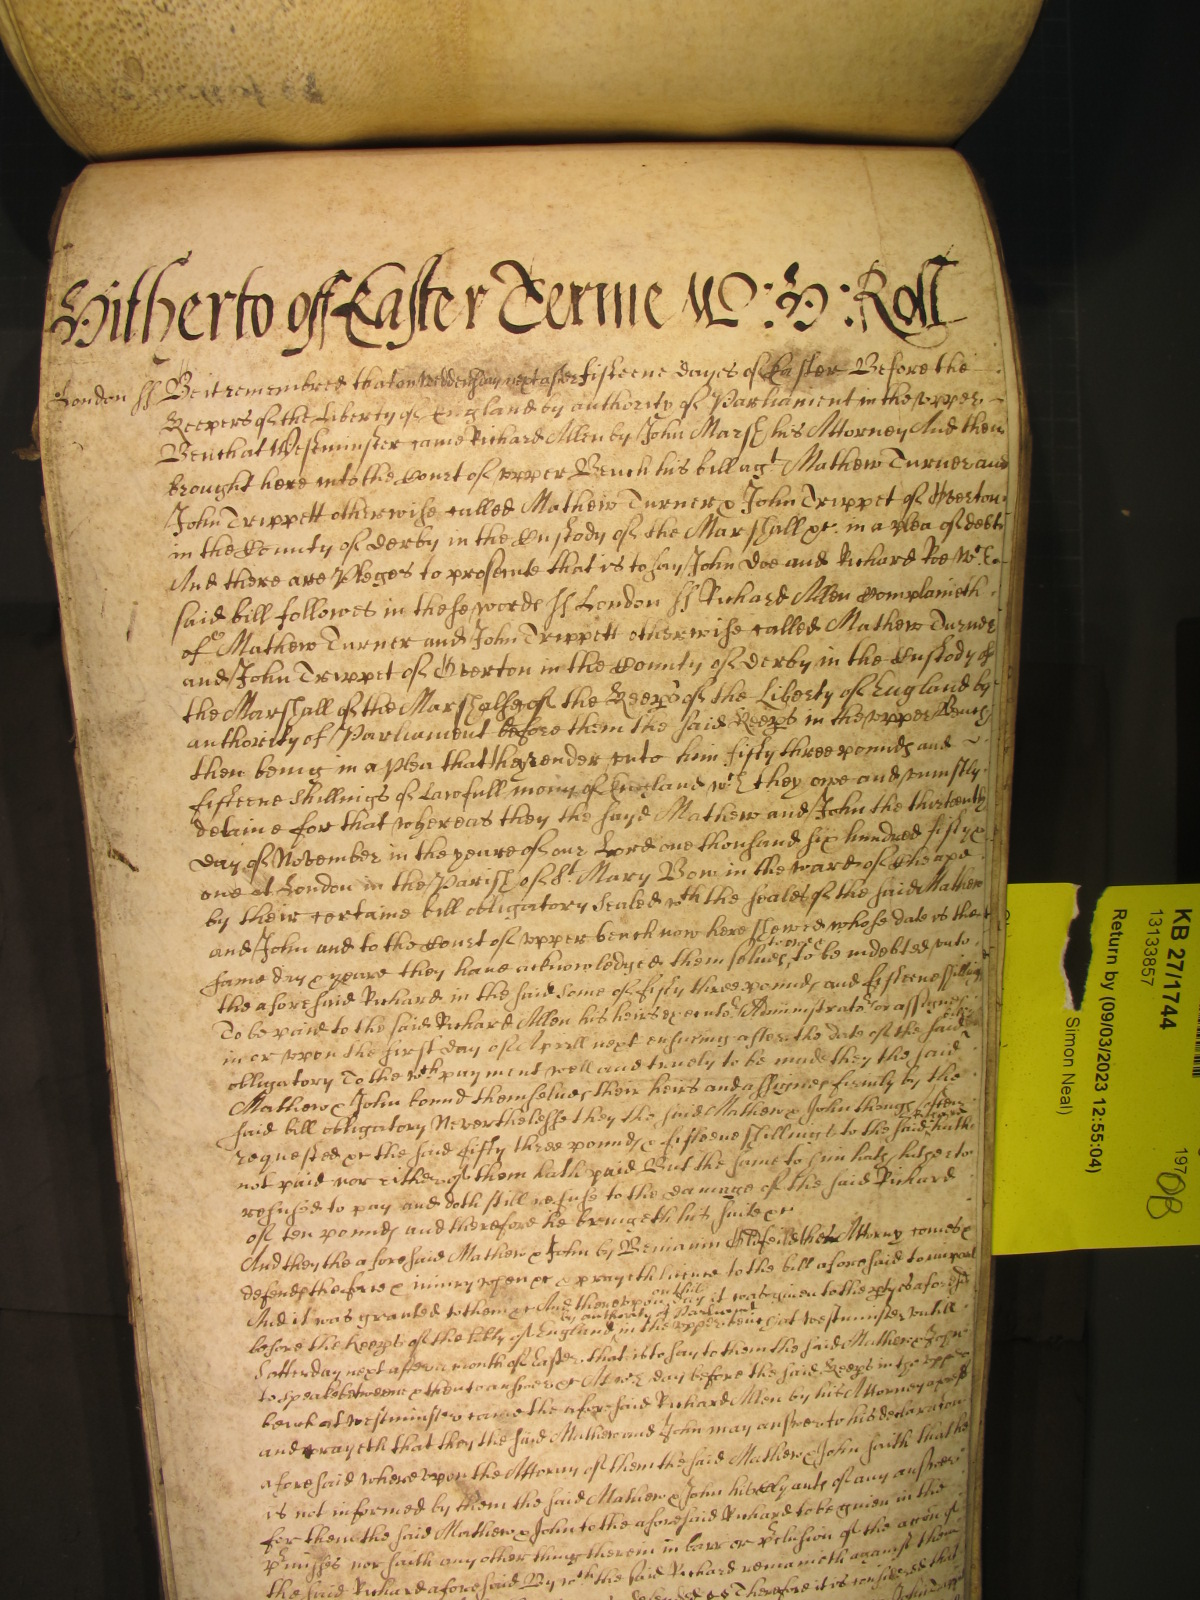 Hitherto off Easter Terme W : H : Roll
London ss Be it remembred that on Weddensday next after fifteene dayes of Easter Before the
Keepers of the Liberty of England by authority of Parliament in the upper
Bench at Westminster came Richard Allen by John Marsh his Attorney And then
brought here into the Court of upper Bench his bill agt Mathew Turner and
John Trippett otherwise called Mathew Turner & John Trippet of Overton
in the County of Derby in the Custody of the Marshall &c. in a plea of debt
And there are Pleges to prosecute that is to say John Doe and Richard Roe wch
said bill followes in these words ss London ss Richard Allen Complaineth
of Mathew Turner and John Trippett otherwise called Mathew Turner
and John Trippet of Overton in the County of Derby in the Custody of
the Marshall of the Marshalsey of the Keeps of the Liberty of England by
authority of Parliament before them the said Keeps in the upper Bench
then being in a plea that they render unto him fifty three pounds and
fifteene shillings of Lawfull mony of England wch they owe and uniustly
detaine for that whereas they the sayd Mathew and John the thirteenth
day of November in the yeare of our Lord one thousand six hundred fifty &
one at London in the Parish of St Mary Bow in the ward of Cheape
by their certaine bill obligatory Sealed wth the seales of the said Mathew
and John and to the Court of upper bench now here shewed whose date is the
same day & yeare they have acknowledged themselves to be indebted unto
the aforesaid Richard in the said some of fifty three pounds and fifteene shillings
To be paid to the said Richard Allen his heires executors Administrators or assignes
in or upon the first day of Aprill next ensuing after the date of the said
obligatory To the wch payment well and truely to be made they the said
Mathew & John bound themselves their heirs and assignes firmly by the
said bill obligatory Neverthelesse they the said Mathew & John though often
requested &c the said fifty three pounds & fifteene shillings to the said Richard hath
not paid nor either of them hath paid But the same to him hath hitherto
refused to pay and doth still refuse to the damage of the said Richard
of ten pounds and therefore he bringeth his suite &c
And they the aforesaid Mathew & John by Beniamin their Attorny comes &
defends the force & iniury when &c & prayeth licence to the bill aforesaid to imparl
And it was granted to them &c And thereupon day it was given to the ptyes aforesd
before the Keeps of the libty of England by authority of Parliament in the upper bench at Westminster untill
Satterday next after a month of Easter that is to say to them the said Mathew & John
to speake betweene & then to answer &c At wch day before the said Keeps in the upper
bench at Westminster came the aforesaid Richard Allen by his Attorney aforesd
and prayeth that they the said Mathew and John may answer to his declaration
aforesaid whereupon the Attorny of them the said Mathew & John saith that he
is not informed by them the said Mathew & John his clyants of any answere
for them the said Mathew & John to the aforesaid Richard to be given in the
pmisses nor saith any other thing therein in barr or pclusion of the accon of
the said Richard aforesaid By wch the said Richard remaineth against them
Therefore it is considered that
KB 27/1744
13133857
Return by (09/03/2023 12:55:04)
Simon Neal)